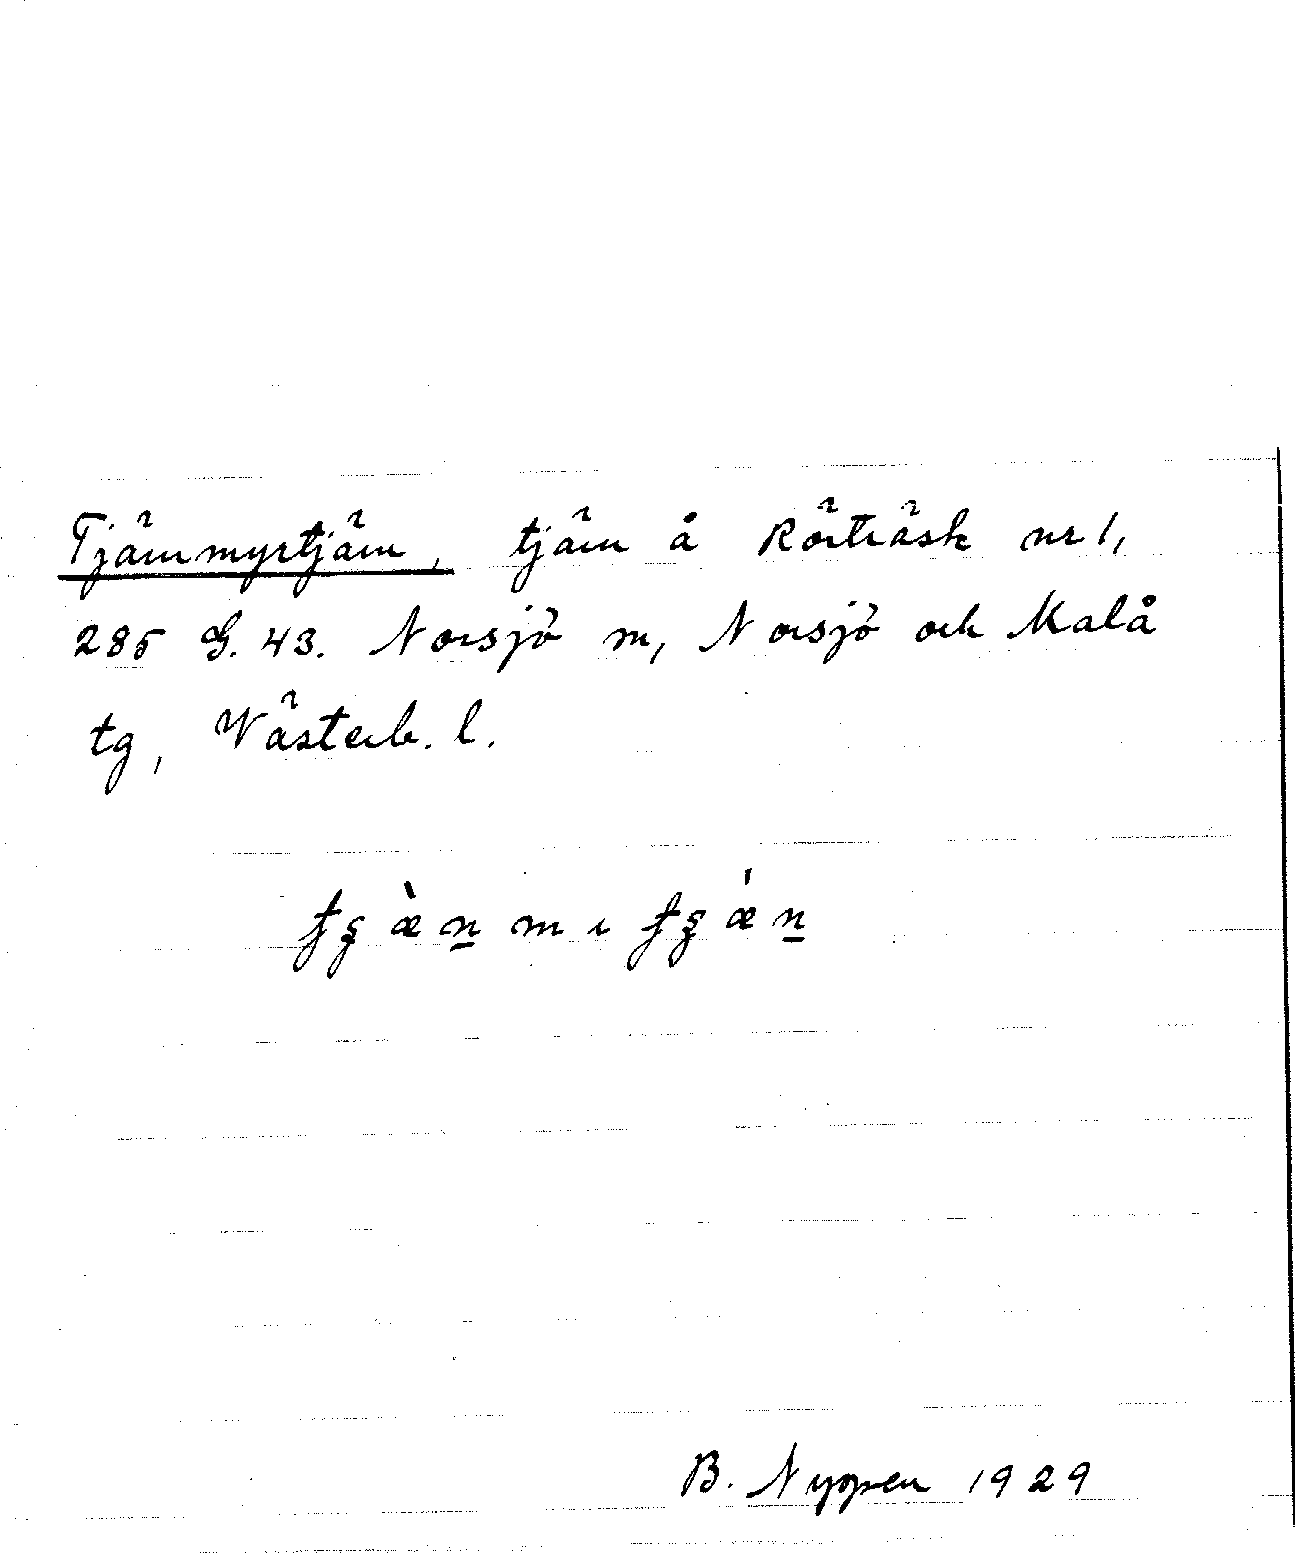 Tjärnmyrtjärn, tjärn å Rörträsk nr 1,
285 G. 43. Norsjö m, Norsjö och Malå
tg, Västerb. l.
B. Nyopen 1929